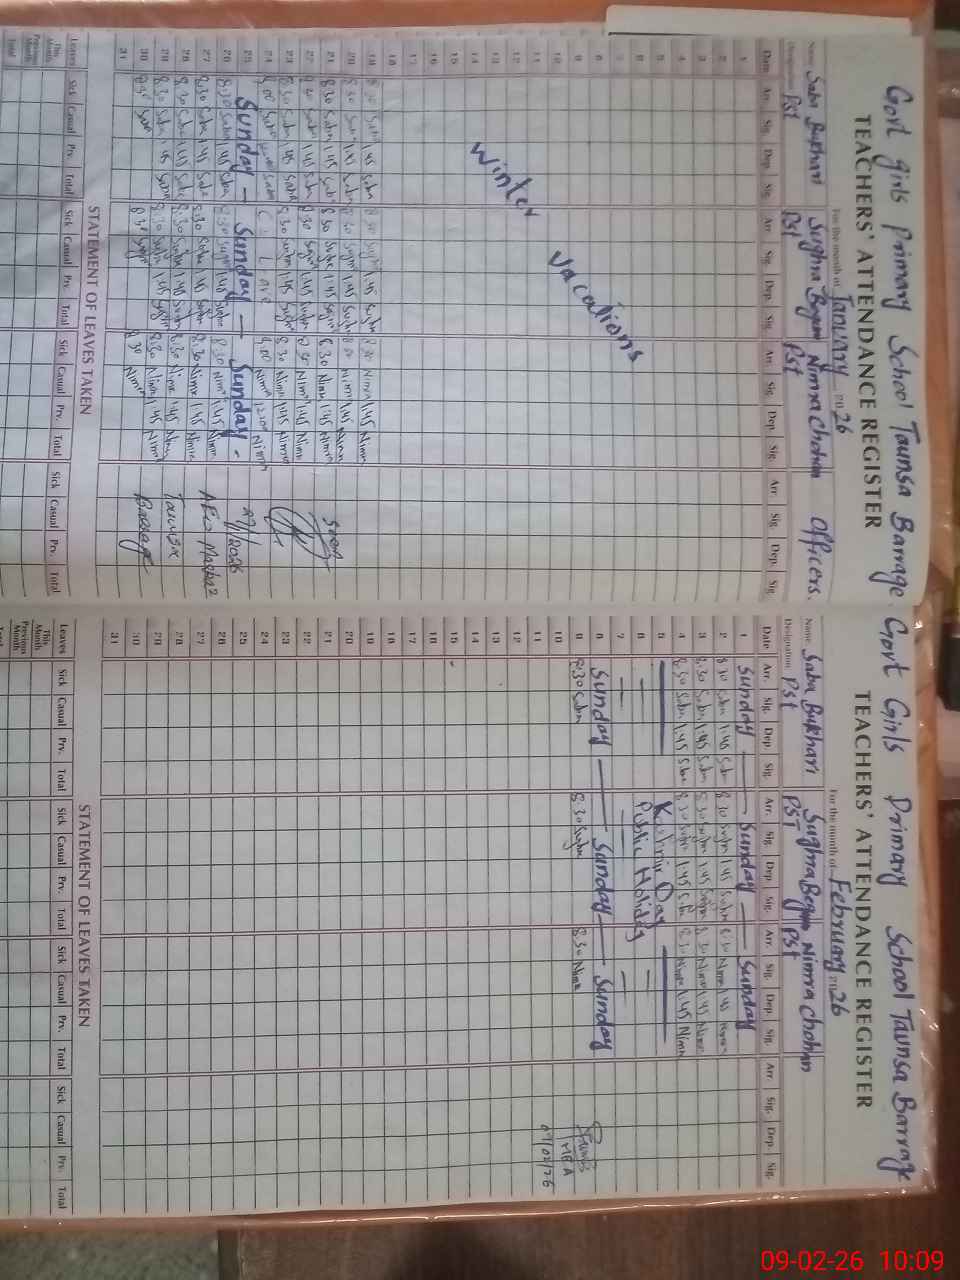 Govt girls Primary School Taunsa Barrage.
TEACHERS' ATTENDANCE REGISTER
For the month of January 2026
Name Saba Bukhari Sughra Begum Nimra Chohan Officers.
Designation PSt PSt PSt
Date Arr. Sig. Dep. Sig. Arr. Sig. Dep. Sig. Arr. Sig. Dep. Sig. Arr. Sig. Dep. Sig.
1
2
3
4
5
6
7
8
9
10
11
12
13
14
15
16
17
18
Winter Vacations
19 8:30 Saba 1:45 Saba 8:30 1:45 8:30 Nimra 1:45 Nimra
20 8:30 Saba 1:45 Saba 8:30 1:45 8:30 Nimra 1:45 Nimra
21 8:30 Saba 1:45 Saba 8:30 Sughra 1:45 8:30 Nimra 1:45 Nimra
22 8:30 Saba 1:45 Saba 8:30 1:45 8:30 Nimra 1:45 Nimra
23 8:30 Saba 1:45 Saba 8:30 Sughra 1:45 8:30 Nimra 1:45 Nimra
24 9:00 Saba Saba C. Leave 9:00 Nimra 12:00 Nimra
25 Sunday — Sunday — Sunday -
26 8:30 Saba 1:45 Saba 8:30 Sughra 1:45 Sughra 8:30 Nimra 1:45 Nimra
27 8:30 Saba 1:45 Saba 8:30 Sughra 1:45 Sughra 8:30 Nimra 1:45 Nimra
28 8:30 Saba 1:45 Saba 8:30 Sughra 1:45 Sughra 8:30 Nimra 1:45 Nimra
29 8:30 Saba 1:45 Saba 8:30 Sughra 1:45 Sughra 8:30 Nimra 1:45 Nimra
30 8:30 Saba 8:30 8:30 Nimra
31
2026
AEO
Taunsa
Barrage
STATEMENT OF LEAVES TAKEN
Leaves Sick Casual Prv. Total Sick Casual Prv. Total Sick Casual Prv. Total Sick Casual Prv. Total
This Month
Previous Month
Total
Govt Girls Primary School Taunsa Barrage
TEACHERS' ATTENDANCE REGISTER
For the month of February 2026
Name Saba Bukhari Sughra Begum Nimra Chohan
Designation PSt PST PSt
Date Arr. Sig. Dep. Sig. Arr. Sig. Dep. Sig. Arr. Sig. Dep. Sig. Arr. Sig. Dep. Sig.
1 Sunday — Sunday — Sunday
2 8:30 Saba 1:45 Saba 8:30 Sughra 1:45 Sughra 8:30 Nimra 1:45
3 8:30 Saba 1:45 Saba 8:30 Sughra 1:45 Sughra 8:30 Nimra 1:45 Nimra
4 8:30 Saba 1:45 Saba 8:30 Sughra 1:45 8:30 Nimra 1:45 Nimra
5 Kashmir Day
6 Public Holiday
7
8 Sunday — Sunday — Sunday
9 8:30 Saba 8:30 Sughra 8:30 Nimra
10
11
12
13
14
15
16
17
18
19
20
21
22
23
24
25
26
27
28
29
30
31
MEA
09/02/26
STATEMENT OF LEAVES TAKEN
Leaves Sick Casual Prv. Total Sick Casual Prv. Total Sick Casual Prv. Total Sick Casual Prv. Total
This Month
Previous Month
Total
09-02-26 10:09